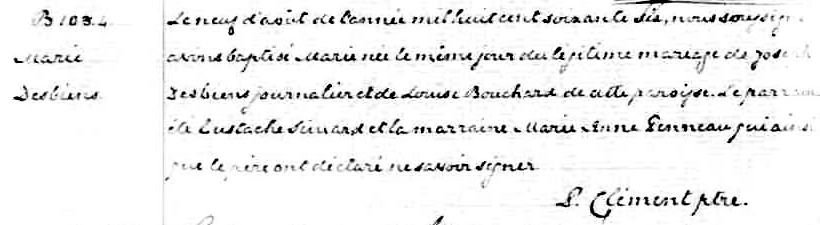 B 103.
Marie
Desbiens
Le neuf d'août de l'année mil huit cent soixante six, nous soussign
avons baptisé Marie née le même jour du légitime mariage de Joseph
Desbiens journalier et de Louise Bouchard de cette paroisse. Le parrain
été Eustache Simard et la marraine Marie Anne qui ainsi
que le père ont déclaré ne savoir signer
P. Clément ptre.